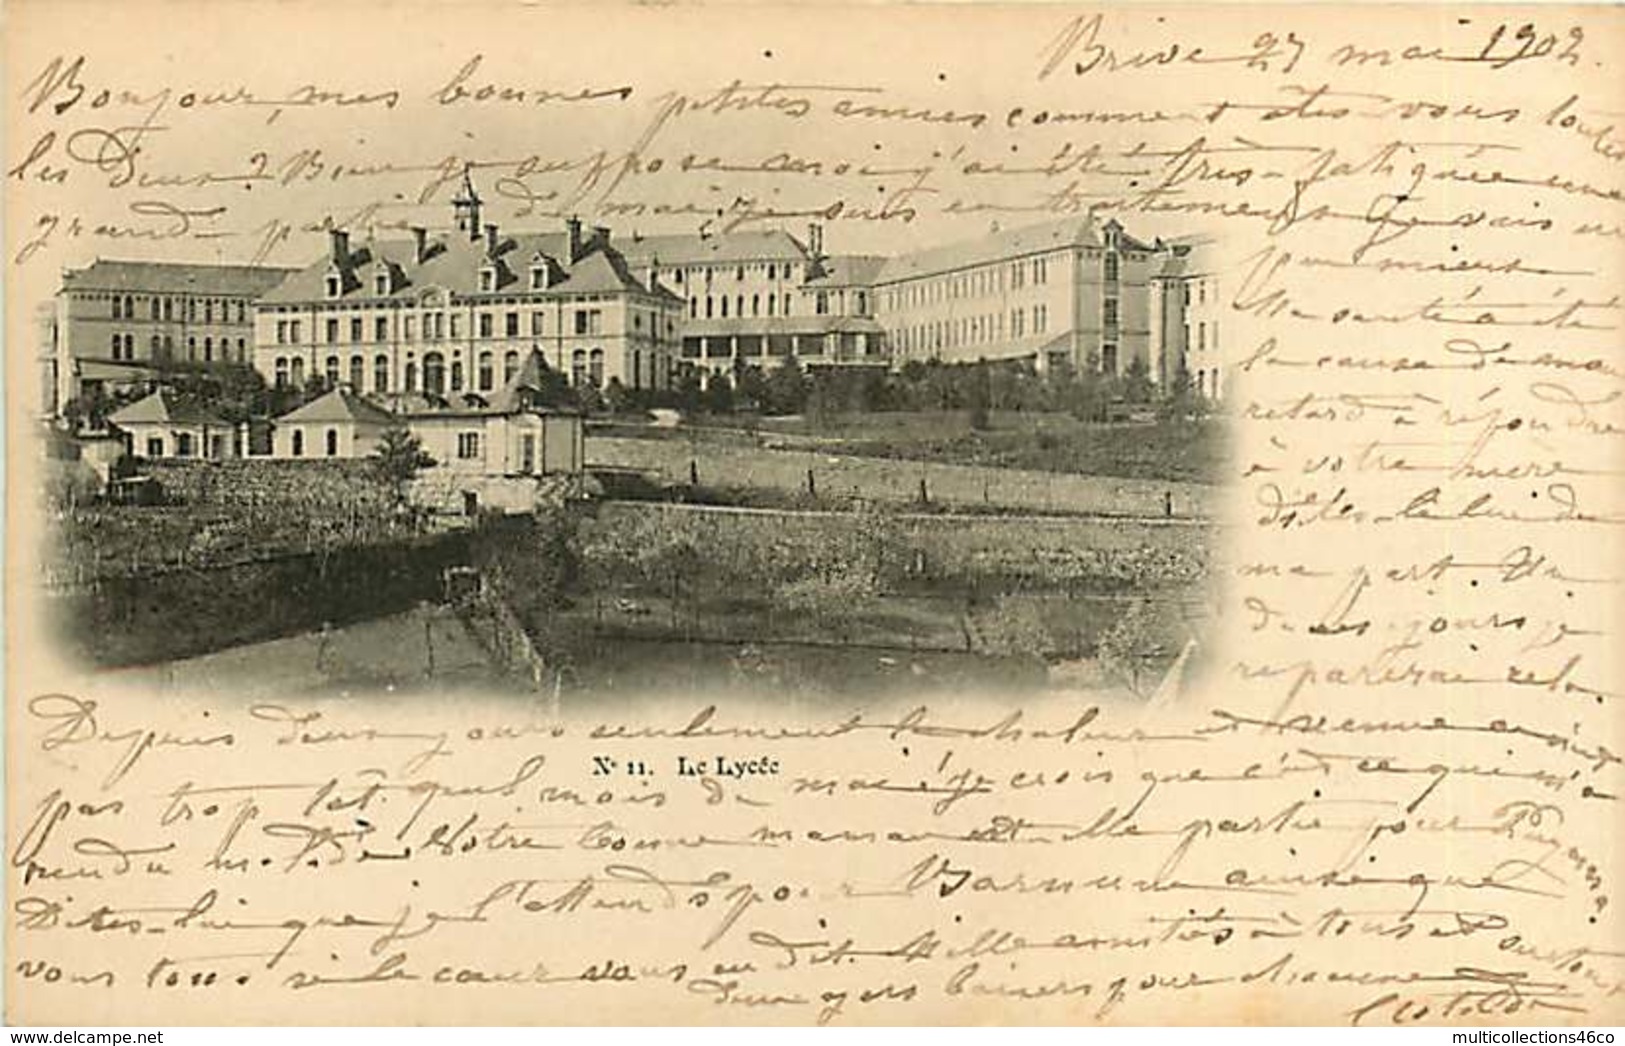 Brive 27 mai 1902.
Bonjour, mes bonnes petites amies comment êtes-vous toutes
les deux? Bien je suppose moi j'ai été très-fatiguée une
grande partie de mai, je suis en traitement je vais un
peu mieux
Ma santé a été
la cause de mon
retard à répondre
à votre mère
dites-le lui de
ma part. Un
de ces jours je
réparerai cela.
Depuis deux jours seulement la chaleur est venue
pas trop tôt. quel mois de mai! je crois que c'est ce qui m'a
rendu Votre bonne maman est elle partie pour
Dites-lui que je l'attends pour Barnum ainsi que
vous tous si le cœur vous en dit. Mille amitiés à tous et surtout
deux gros baisers pour chacune
Clotilde
N° 11. Le Lycée
multicollections46co